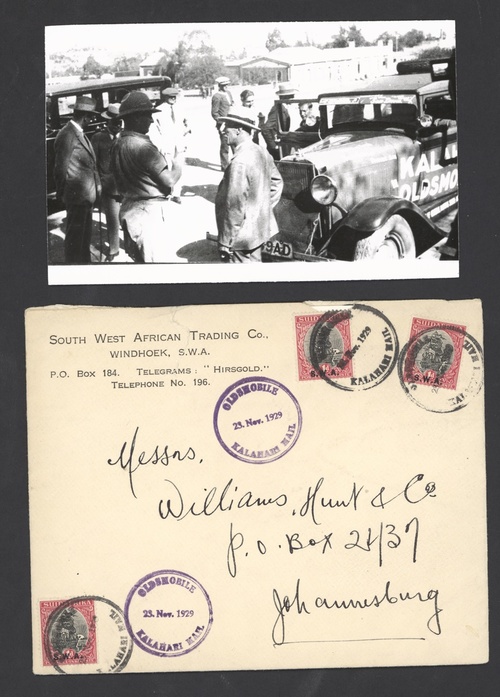 KAL
OLDSMO
9AD
SOUTH WEST AFRICAN TRADING CO.,
WINDHOEK, S.W.A.
P.O. BOX 184. TELEGRAMS: "HIRSGOLD."
TELEPHONE NO. 196.
SUIDAFRIKA
S.W.A.
Nov. 1929
KALAHARI MAIL
SUIDAFRIKA
S.W.A.
MAIL
OLDSMOBILE
23. Nov. 1929
KALAHARI MAIL
Messrs.
Williams, Hunt & Co
P.O. Box 2137
Johannesburg
OLDSMOBILE
23. Nov. 1929
KALAHARI MAIL
S.W.A.
MAIL